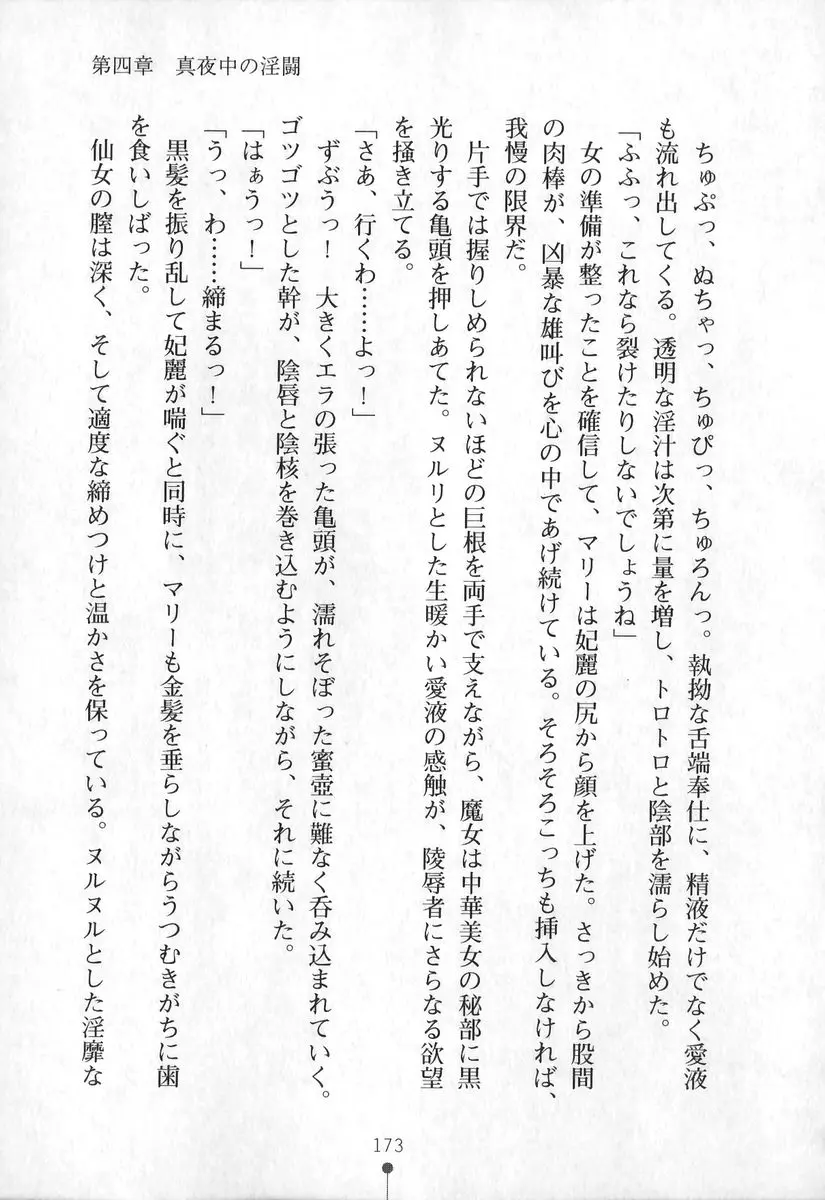 第四章　真夜中の淫闘
　ちゅぷっ、ぬちゃっ、ちゅぴっ、ちゅろんっ。執拗な舌端奉仕に、精液だけでなく愛液
も流れ出してくる。透明な淫汁は次第に量を増し、トロトロと陰部を濡らし始めた。
「ふふっ、これなら裂けたりしないでしょうね」
　女の準備が整ったことを確信して、マリーは妃麗の尻から顔を上げた。さっきから股間
の肉棒が、凶暴な雄叫びを心の中であげ続けている。そろそろこっちも挿入しなければ、
我慢の限界だ。
　片手では握りしめられないほどの巨根を両手で支えながら、魔女は中華美女の秘部に黒
光りする亀頭を押しあてた。ヌルリとした生暖かい愛液の感触が、陵辱者にさらなる欲望
を掻き立てる。
「さあ、行くわ……よっ！」
　ずぶうっ！　大きくエラの張った亀頭が、濡れそぼった蜜壺に難なく呑み込まれていく。
ゴツゴツとした幹が、陰唇と陰核を巻き込むようにしながら、それに続いた。
「はぁうっ！」
「うっ、わ……締まるっ！」
　黒髪を振り乱して妃麗が喘ぐと同時に、マリーも金髪を垂らしながらうつむきがちに歯
を食いしばった。
　仙女の膣は深く、そして適度な締めつけと温かさを保っている。ヌルヌルとした淫靡な
173